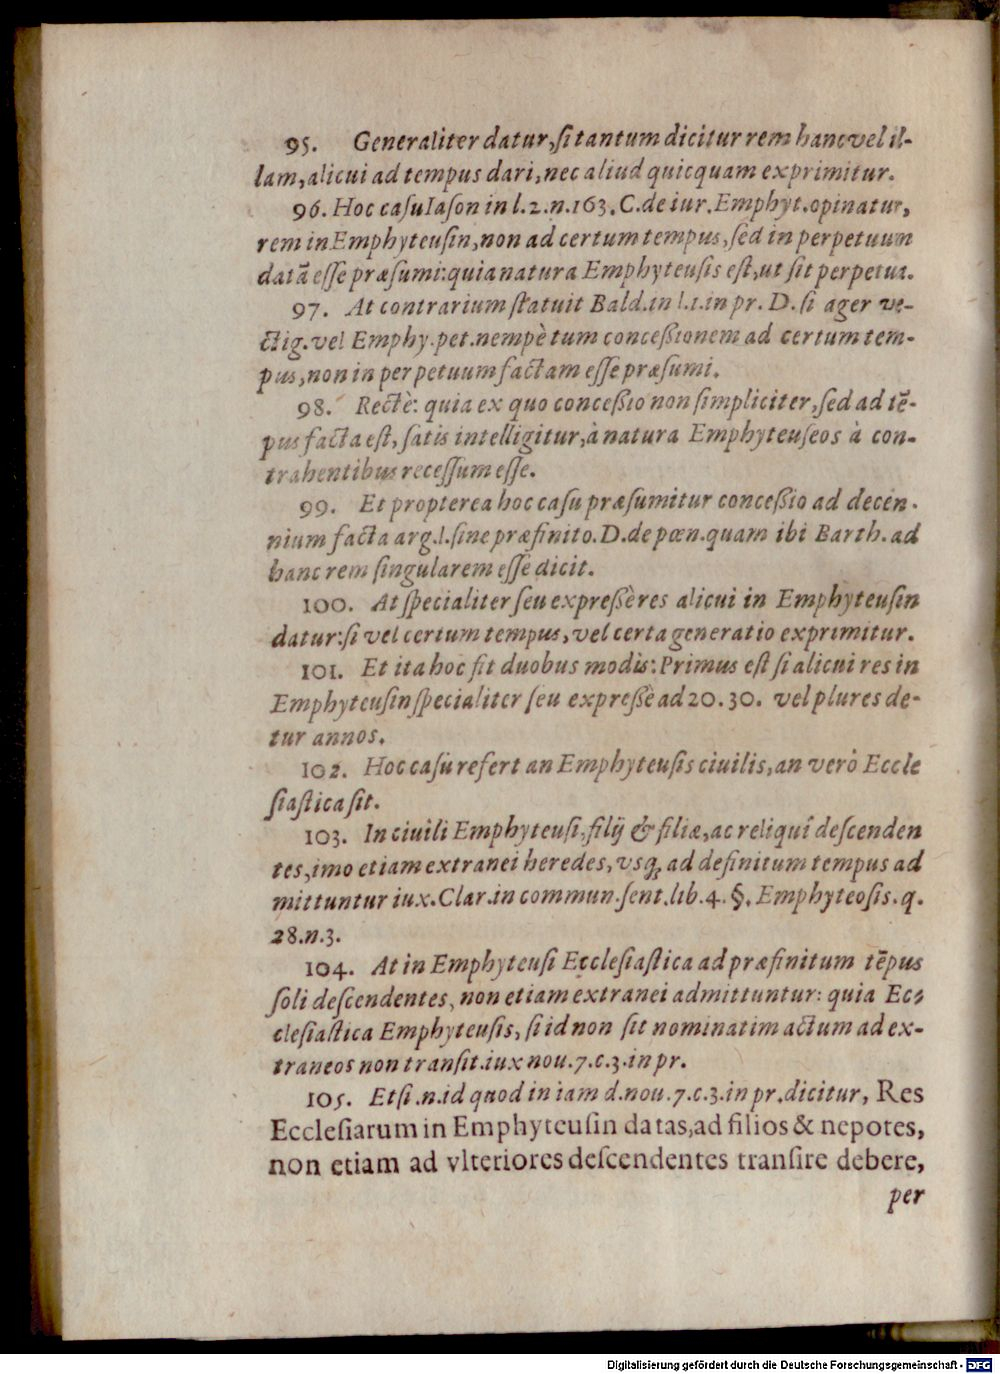 95. Generaliter datur, ſi tantum dicitur rem hanc vel il-
lam, alicui ad tempus dari, nec aliud quicquam exprimitur.
96. Hoc caſu Iaſon in l.2.n.163.C.de iur.Emphyt.opinatur,
rem in Emphyteuſin, non ad certum tempus, ſed in perpetuum
datā eſſe præſumi: quia natura Emphyteuſis eſt, ut ſit perpetua.
97. At contrarium ſtatuit Bald.in l.1.in pr. D. ſi ager ve-
ctig.vel Emphy.pet.nempè tum conceßionem ad certum tem-
pus, non in perpetuum factam eſſe præſumi.
98. Rectè: quia ex quo conceßio non ſimpliciter, ſed ad tē-
pus facta eſt, ſatis intelligitur, à natura Emphyteuſeos à con-
trahentibus receſſum eſſe.
99. Et propterea hoc caſu præſumitur conceßio ad decen-
nium facta arg.l.ſine præfinito.D.de pœn.quam ibi Barth. ad
hanc rem ſingularem eſſe dicit.
100. At ſpecialiter ſeu expreßè res alicui in Emphyteuſin
datur: ſi vel certum tempus, vel certa generatio exprimitur.
101. Et ita hoc fit duobus modis: Primus eſt ſi alicui res in
Emphyteuſin ſpecialiter ſeu expreßè ad 20.30. vel plures de-
tur annos.
102. Hoc caſu refert an Emphyteuſis ciuilis, an verò Eccle
ſiaſtica ſit.
103. In ciuili Emphyteuſi, filij & filiæ, ac reliqui deſcenden
tes, imo etiam extranei heredes, vsq; ad definitum tempus ad
mittuntur iux.Clar.in commun.ſent.lib.4.§.Emphyteoſis.q.
28.n.3.
104. At in Emphyteuſi Eccleſiaſtica ad præfinitum tēpus
ſoli deſcendentes, non etiam extranei admittuntur: quia Ec-
cleſiaſtica Emphyteuſis, ſi id non ſit nominatim actum ad ex-
traneos non tranſit.iux nou.7.c.3.in pr.
105. Etſi.n.id quod in iam d.nou.7.c.3.in pr.dicitur, Res
Eccleſiarum in Emphyteuſin datas, ad filios & nepotes,
non etiam ad vlteriores deſcendentes tranſire debere,
per
Digitalisierung gefördert durch die Deutsche Forschungsgemeinschaft - DFG